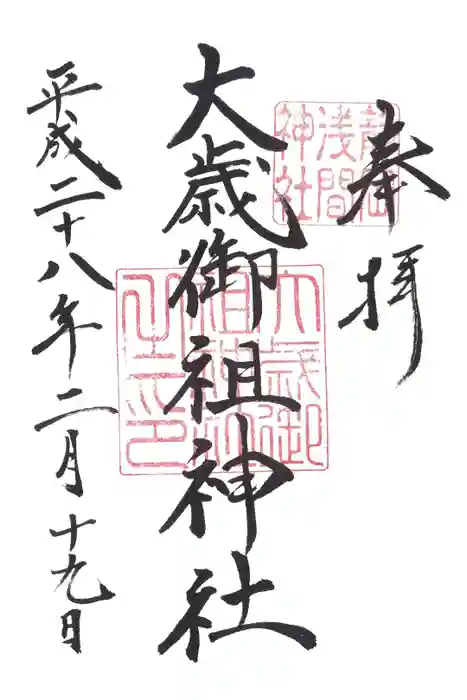 奉拝
大歳御祖神社
平成二十八年二月十九日
浅間
神社
大歳御
祖神社
之印